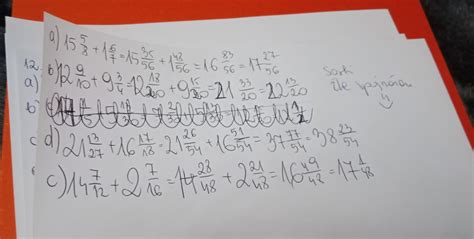 a) 15 5/8 + 1 6/7 = 15 35/56 + 1 48/56 = 16 83/56 = 17 27/56
12.
b) 12 9/10 + 9 3/4 = 12 18/20 + 9 15/20 = 21 33/20 = 22 13/20
a)
b
d) 21 13/27 + 16 17/18 = 21 26/54 + 16 51/54 = 37 77/54 = 38 23/54
c
c) 14 7/12 + 2 7/16 = 14 28/48 + 2 21/48 = 16 49/48 = 17 1/48